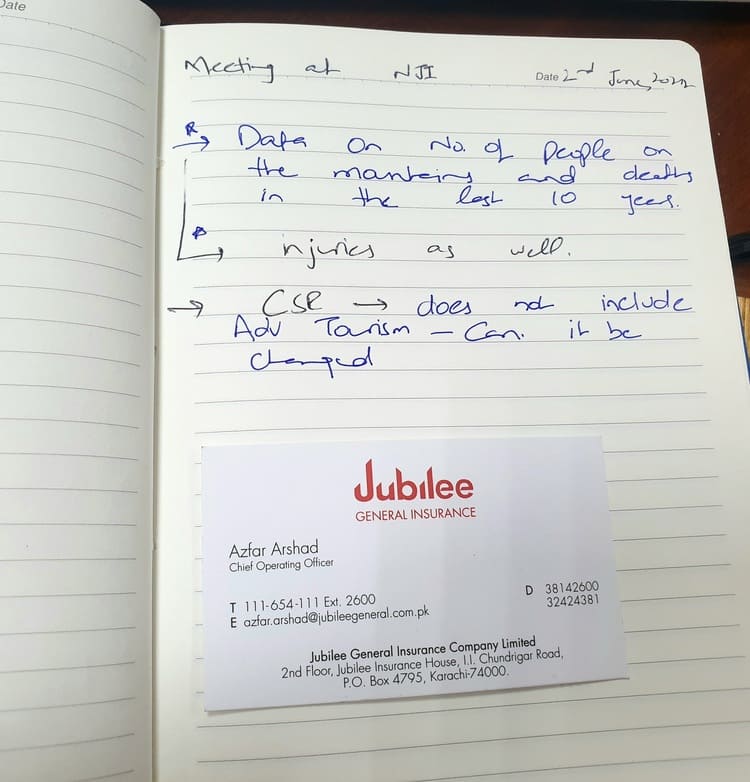 Date
Meeting at NJI
Date 2nd June, 2022
→ Data on No. of people on
the mountains and deaths
in the last 10 years.
→ injuries as well.
→ CSR → does not include
Adv Tourism – Can it be
changed
Jubilee
GENERAL INSURANCE
Azfar Arshad
Chief Operating Officer
T 111-654-111 Ext. 2600
E azfar.arshad@jubileegeneral.com.pk
D 38142600
32424381
Jubilee General Insurance Company Limited
2nd Floor, Jubilee Insurance House, I.I. Chundrigar Road,
P.O. Box 4795, Karachi-74000.